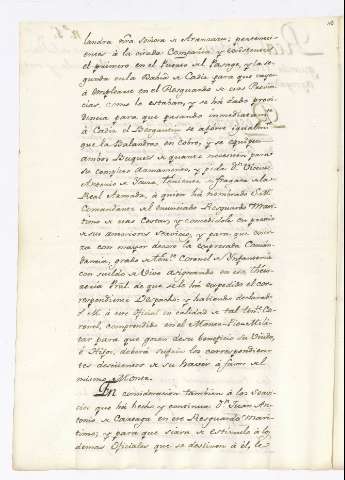 landra nra señora de Aranzazu, pertenecientes
à la citada Compañia, y existentes
el primero en el Puerto del Pasage, y la segunda
en la Bahia de Cadiz para que vayan
à emplearse en el Resguardo de esas Provincias,
como lo estaban; y se há dado providencia
para que pasando immediatam.te
à Cadiz el Bergantin se aforre igualm.te
que la Balandra en cobre, y se equipen
ambos Buques de quanto necesiten para
su completo armamento, y pida Dn. Vicente
Antonio de Icuza, theniente de fragata de la
Real Armada, à quien há nombrado S. M.
Comandante del enunciado Resguardo Maritimo
de esas Costas, y concedidole en premio
de sus anteriores servicios, y para que exerza
con mayor decoro la expresada Comandancia,
grado de then.te Coronel de Infanteria
con sueldo de Vivo asignando en esa Thesoreria
Pral. de que se le há expedido el correspondiente
Despacho: y habiendo declarado
S. M. à este oficial en calidad de tal then.te Coronel,
comprendido en el Monte-Pio Militar
para que gocen de su beneficio su Viuda,
ò Hijos, deberá sufrir los correspondientes
descuentos de su haver à favor del
mismo Monte.
En consideracion tambien à los servicios
que há hecho y continua Dn. Juan Antonio
de Careaga en ese Resguardo maritimo;
y para que sirva de estimulo à los
demas Oficiales que se destinen à él, le